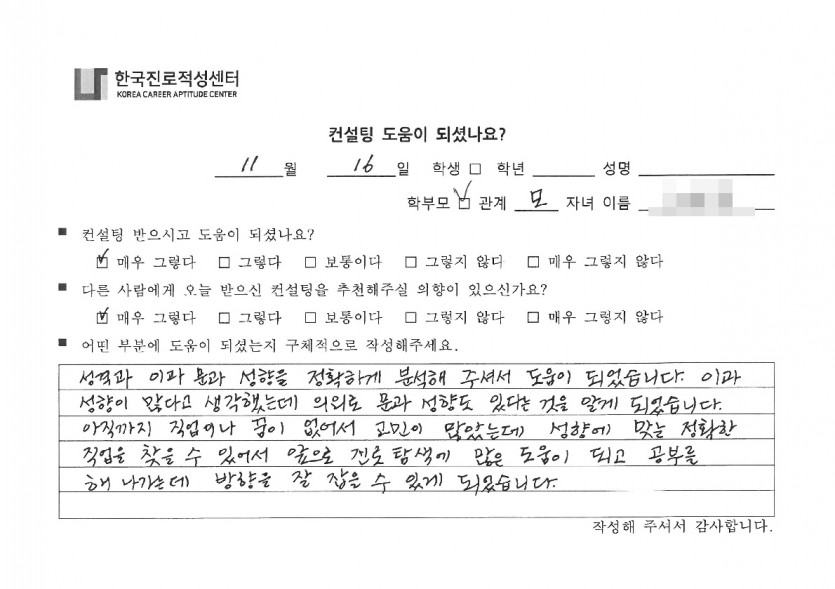 한국진로적성센터
KOREA CAREER APTITUDE CENTER
컨설팅 도움이 되셨나요?
11 월 16 일 학생 □ 학년 성명
학부모 ☑ 관계 모 자녀 이름
■ 컨설팅 받으시고 도움이 되셨나요?
☑ 매우 그렇다 □ 그렇다 □ 보통이다 □ 그렇지 않다 □ 매우 그렇지 않다
■ 다른 사람에게 오늘 받으신 컨설팅을 추천해주실 의향이 있으신가요?
☑ 매우 그렇다 □ 그렇다 □ 보통이다 □ 그렇지 않다 □ 매우 그렇지 않다
■ 어떤 부분에 도움이 되셨는지 구체적으로 작성해주세요.
성격과 이과 문과 성향을 정확하게 분석해 주셔서 도움이 되었습니다. 이과
성향이 많다고 생각했는데 의외로 문과 성향도 있다는 것을 알게 되었습니다.
아직까지 직업이나 꿈이 없어서 고민이 많았는데 성향에 맞는 정확한
직업을 찾을 수 있어서 앞으로 진로 탐색에 많은 도움이 되고 공부를
해 나가는데 방향을 잘 잡을 수 있게 되었습니다.
작성해 주셔서 감사합니다.